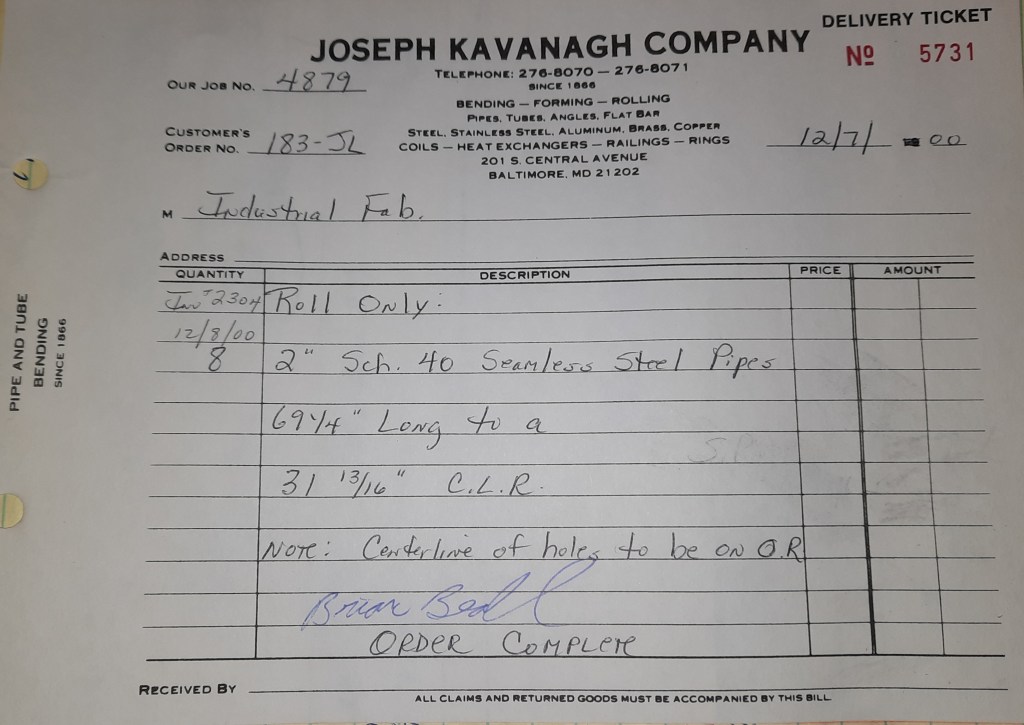 DELIVERY TICKET
JOSEPH KAVANAGH COMPANY
Nº 5731
TELEPHONE: 276-8070 — 276-8071
SINCE 1866
OUR JOB NO. 4879
BENDING — FORMING — ROLLING
PIPES, TUBES, ANGLES, FLAT BAR
STEEL, STAINLESS STEEL, ALUMINUM, BRASS, COPPER
CUSTOMER'S
ORDER NO. 183-JL
COILS — HEAT EXCHANGERS — RAILINGS — RINGS
12/7/ 00
201 S. CENTRAL AVENUE
BALTIMORE, MD 21202
M Industrial Fab.
ADDRESS
QUANTITY DESCRIPTION PRICE AMOUNT
Inv # 2304 Roll Only:
12/8/00
8 2" Sch. 40 Seamless Steel Pipes
69 1/4" Long to a
31 13/16" C.L.R.
NOTE: Centerline of holes to be on O.R
Brian
ORDER COMPLETE
RECEIVED BY
ALL CLAIMS AND RETURNED GOODS MUST BE ACCOMPANIED BY THIS BILL
PIPE AND TUBE
BENDING
SINCE 1866